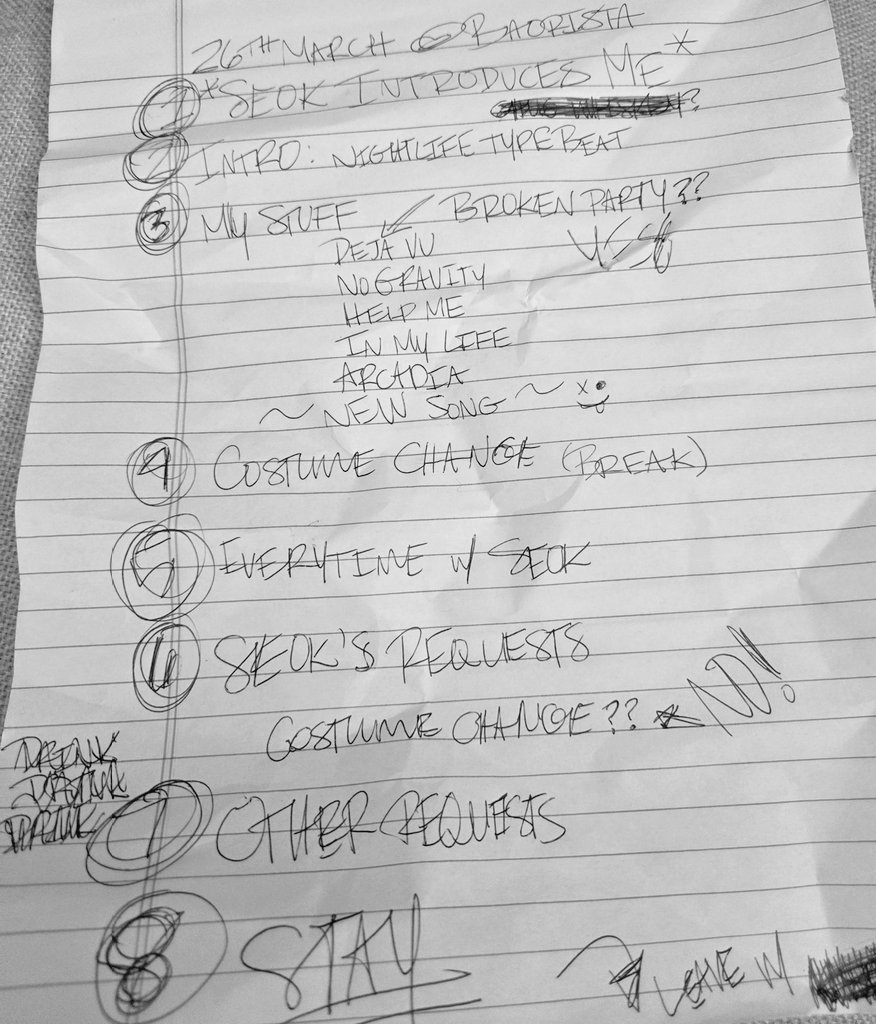 26TH MARCH @ BAORISTA
1 *SEOK INTRODUCES ME*
?
2 INTRO: NIGHTLIFE TYPE BEAT
3 MY STUFF BROKEN PARTY??
YES
DEJA VU
NO GRAVITY
HELP ME
IN MY LIFE
ARCADIA
~ NEW SONG ~
4 COSTUME CHANGE (BREAK)
5 EVERYTIME W/ SEOK
6 SEOK'S REQUESTS
COSTUME CHANGE?? NO!
DRINK
DRINK
DRINK
7 OTHER REQUESTS
8 STAY
LEAVE W/